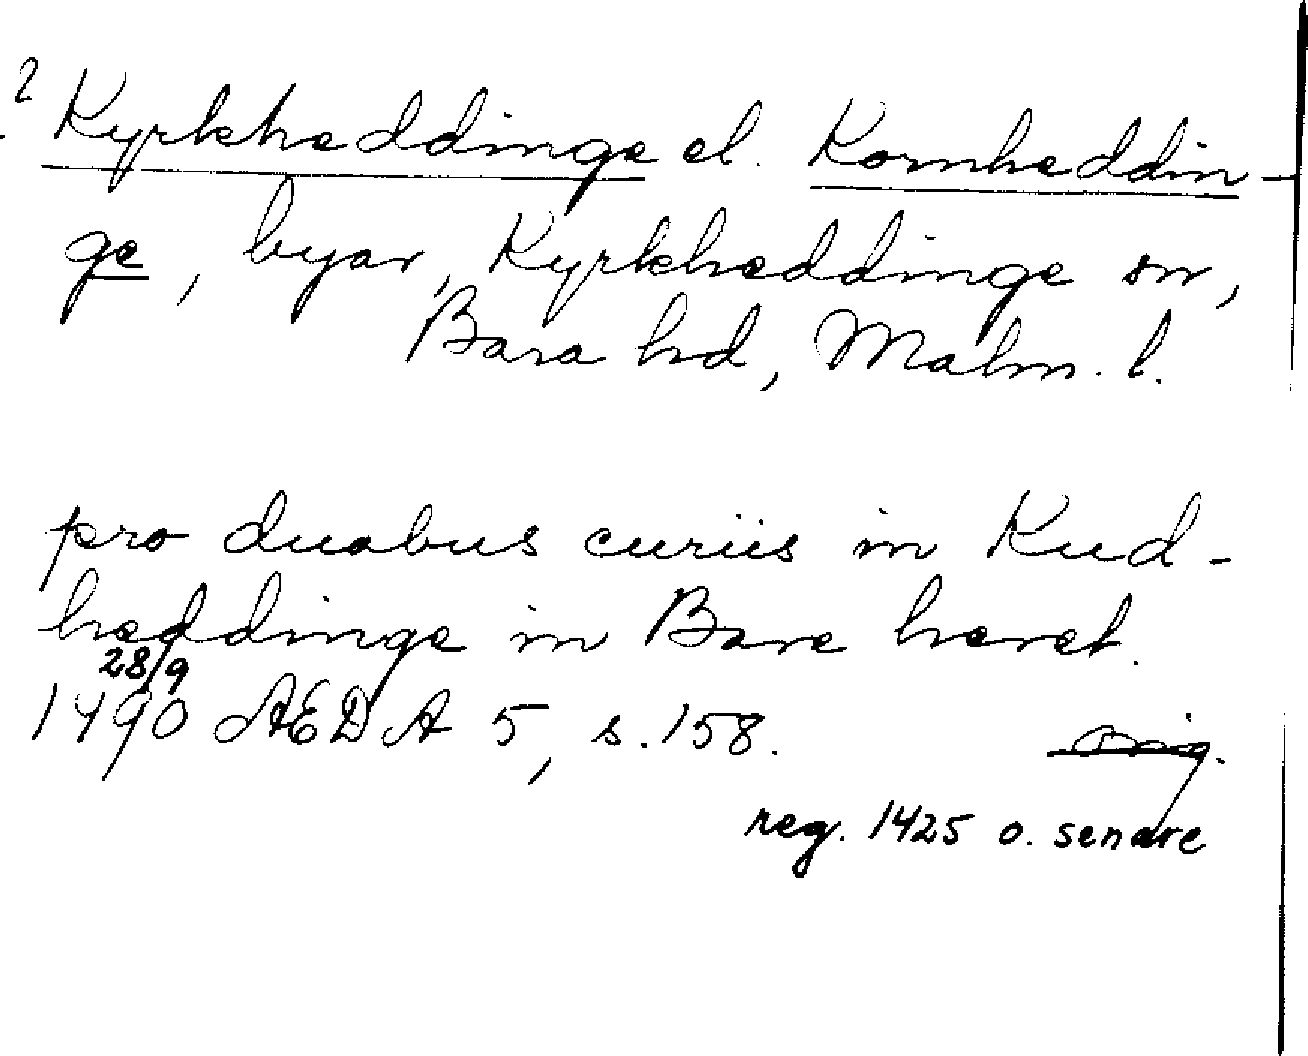 ? Kyrkheddinge el. Kornheddin-
ge, byar, Kyrkheddinge sn,
Bara hd, Malm. l.
pro duabus curiis in Kud-
heddinge in Bare heret.
28/9
1490 ÆDA 5, s. 158. orig.
reg. 1425 o. senare